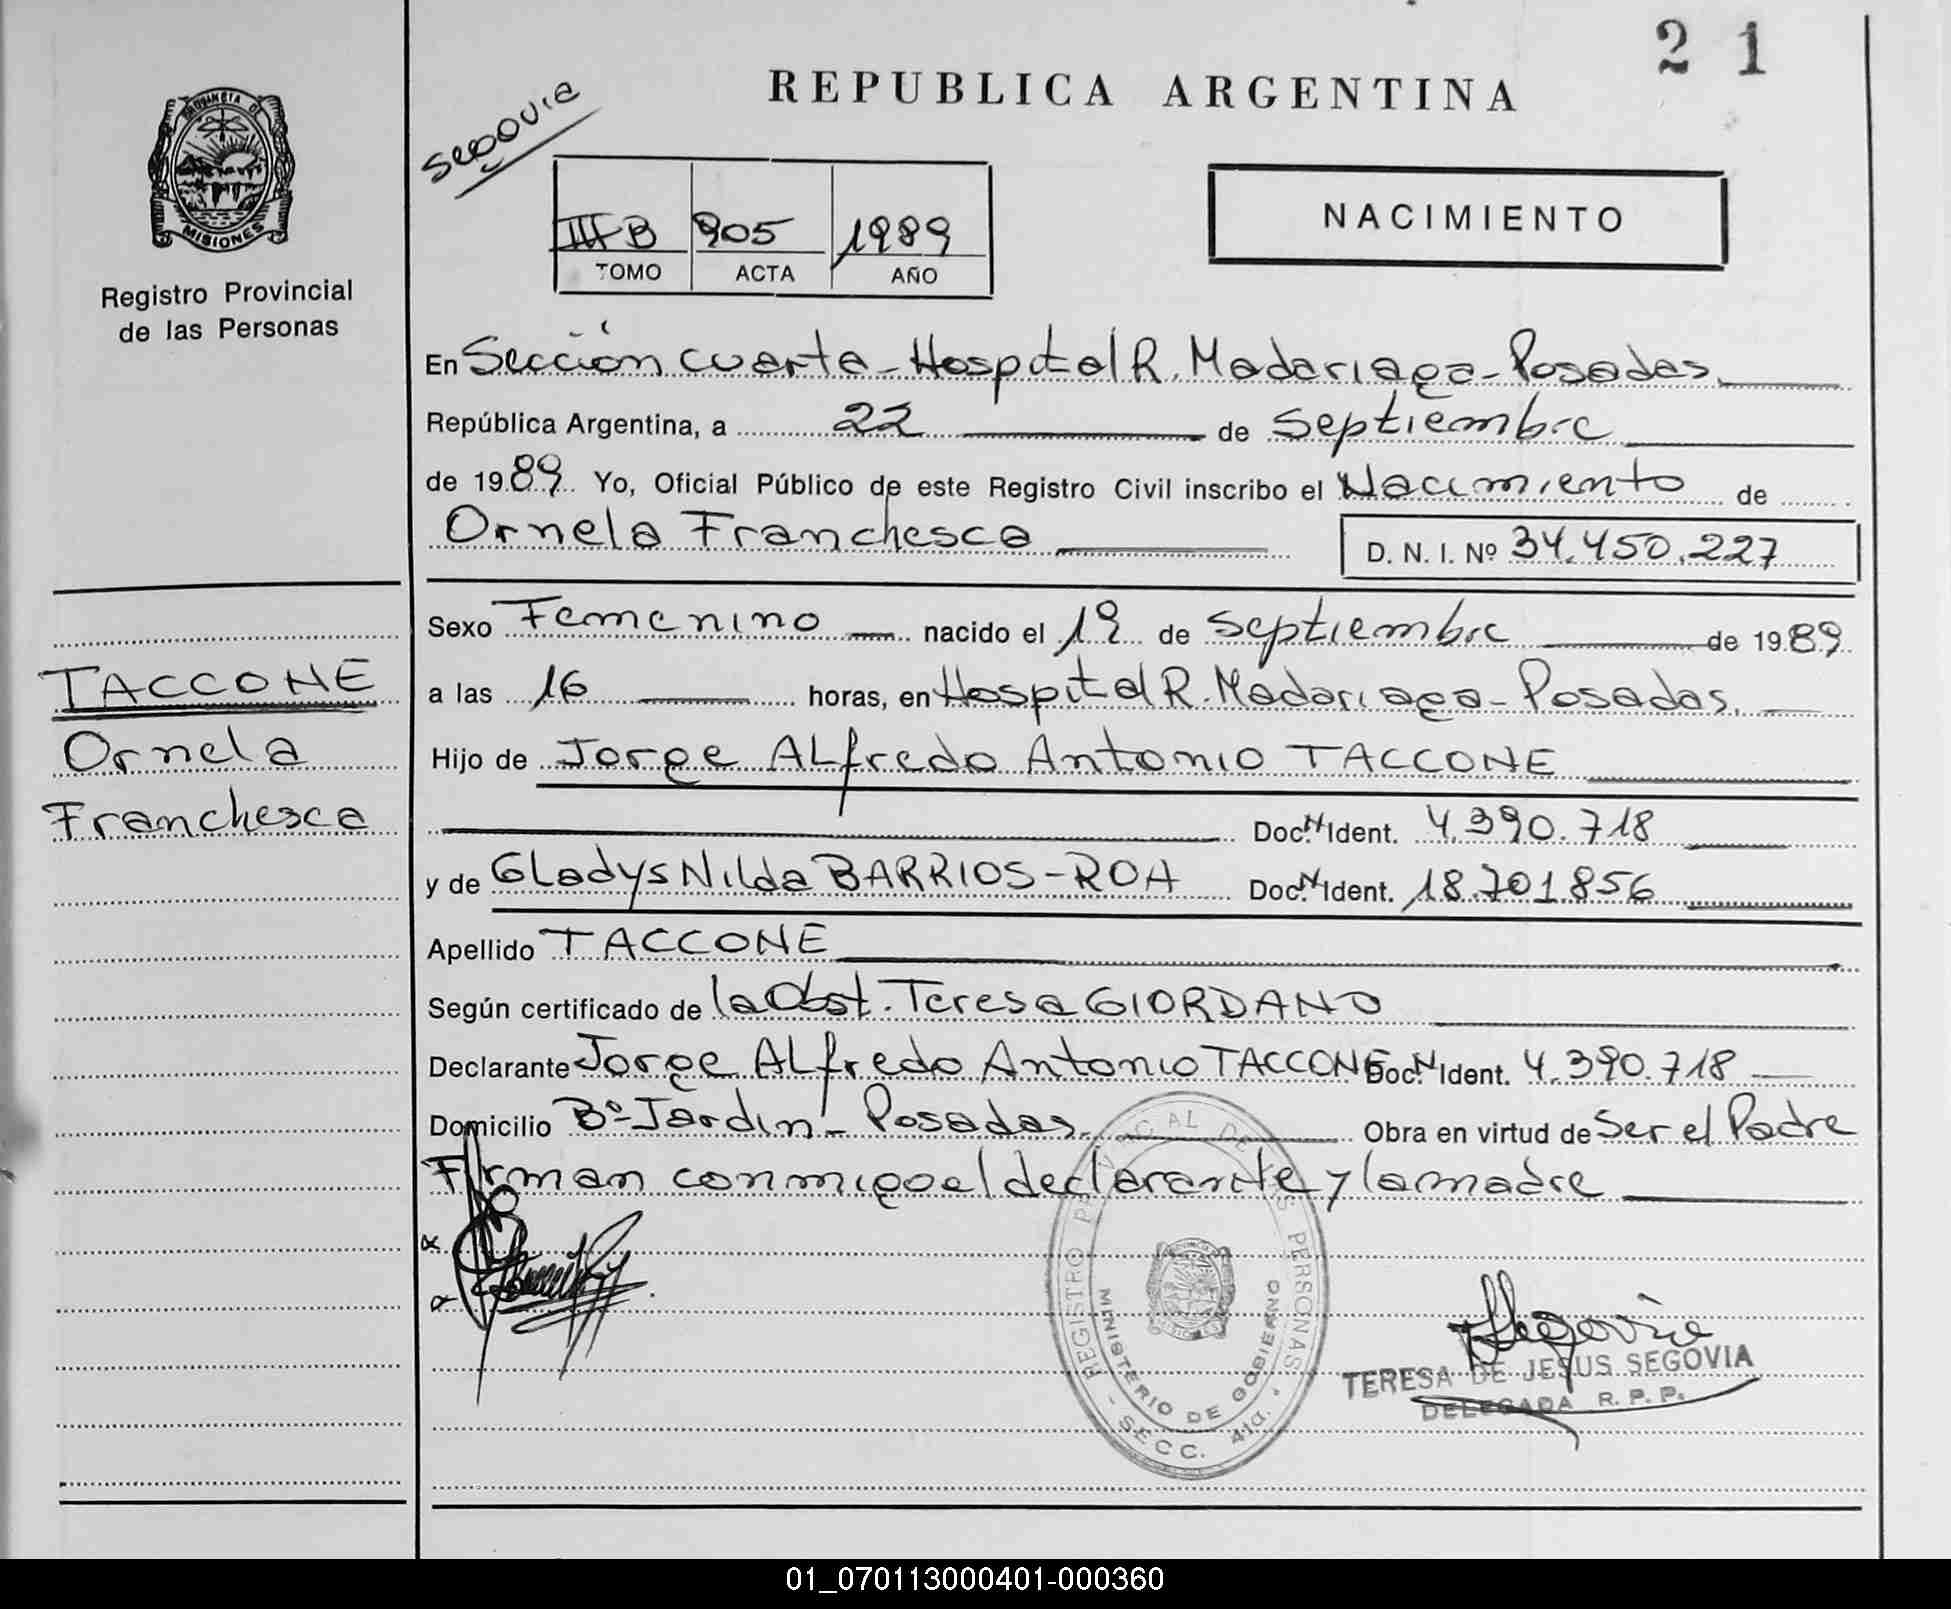 21
REPUBLICA ARGENTINA
PROVINCIA DE
MISIONES
Registro Provincial
de las Personas
Segovia
III B 905 1989
TOMO ACTA AÑO
NACIMIENTO
En Sección cuarta - Hospital R. Madariaga - Posadas.
República Argentina, a 22 de Septiembre
de 1989. Yo, Oficial Público de este Registro Civil inscribo el Nacimiento de
Ornela Franchesca D. N. I. Nº 34.450.227
Sexo Femenino nacido el 19 de Septiembre de 1989
a las 16 horas, en Hospital R. Madariaga - Posadas.
Hijo de Jorge ALfredo Antonio TACCONE
Doc. N Ident. 4.390.718
y de GLadys Nilda BARRIOS-ROA Doc. N Ident. 18.701.856
Apellido TACCONE
Según certificado de la Obst. Teresa GIORDANO
Declarante Jorge ALfredo Antonio TACCONE Doc. N Ident. 4.390.718
Domicilio Bº Jardin - Posadas. Obra en virtud de Ser el Padre
Firman conmigo el declarante y la madre
TACCONE
Ornela
Franchesca
REGISTRO PROVINCIAL DE LAS PERSONAS
MINISTERIO DE GOBIERNO
- SECC. 4ta. -
Segovia
TERESA DE JESUS SEGOVIA
DELEGADA R. P. P.
01_070113000401-000360